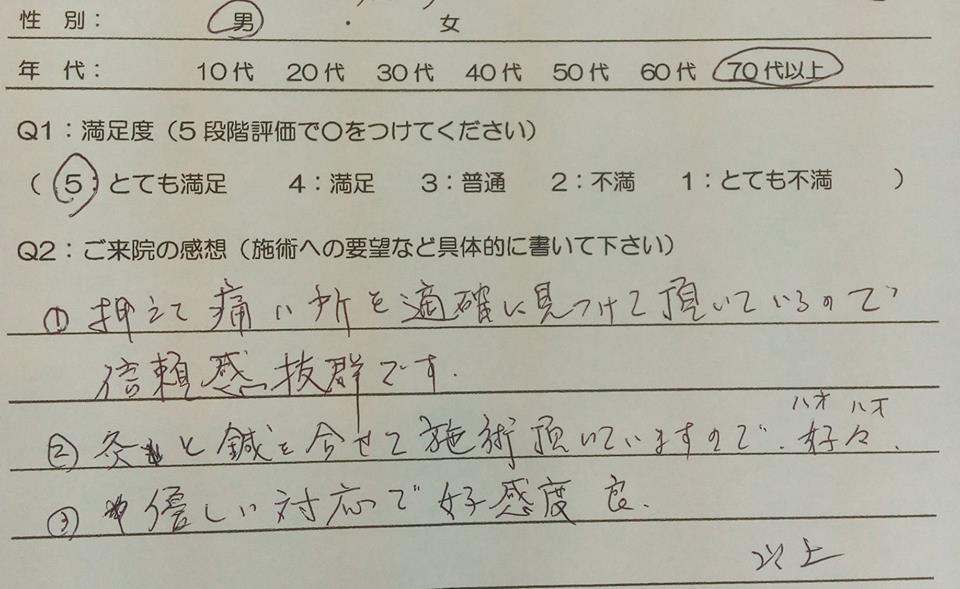 性 別： 男 ・ 女
年 代： 10代 20代 30代 40代 50代 60代 70代以上
Q1：満足度（5段階評価で○をつけてください）
（ 5：とても満足 4：満足 3：普通 2：不満 1：とても不満 ）
Q2：ご来院の感想（施術への要望など具体的に書いて下さい）
① 押えて痛い所を適確に見つけて頂いているので
信頼感抜群です.
ハオ ハオ
② 灸と鍼を合せて施術頂いていますので.好々.
③ 優しい対応で好感度良.
以上